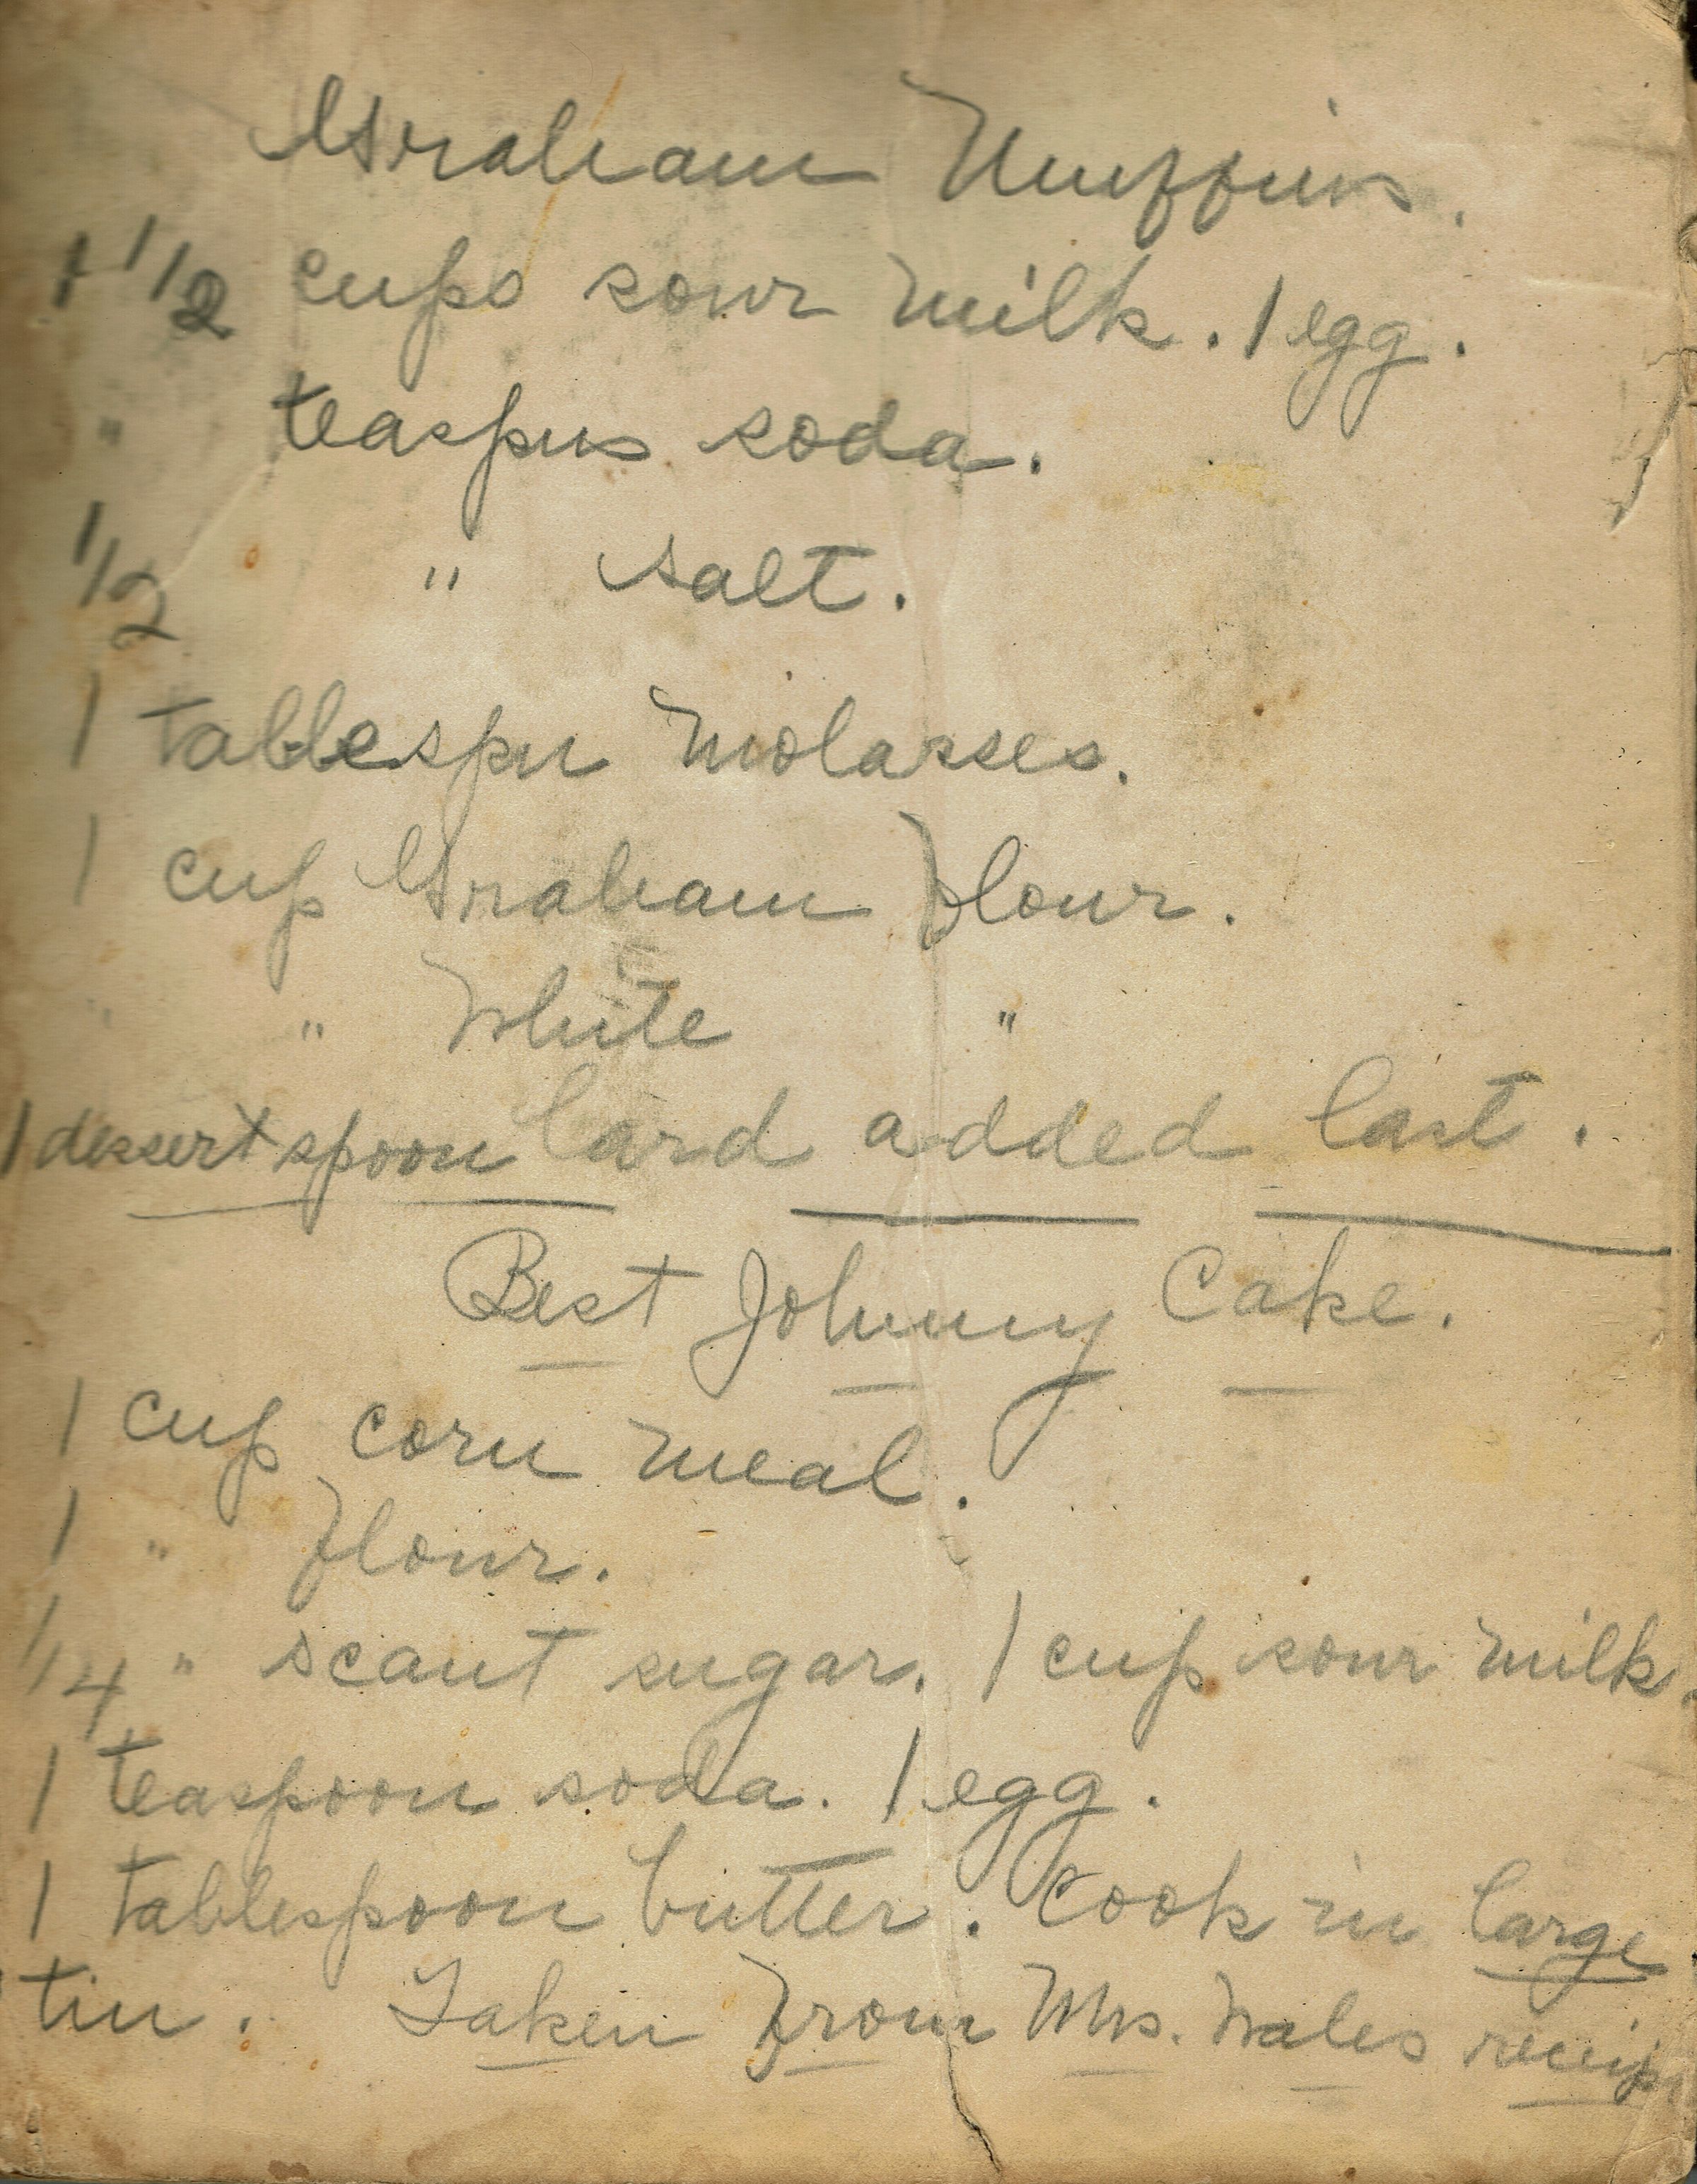 Graham Muffins.
1 1/2 cups sour milk. 1 egg.
" teaspns soda.
1/2 " salt.
1 tablespn Molasses.
1 cup Graham Flour.
" " White "
1 dessert spoon lard added last.
Best Johnny Cake.
1 cup corn meal.
1 " Flour.
1/4 " scant sugar. 1 cup sour milk.
1 teaspoon soda. 1 egg.
1 tablespoon butter. Cook in large
tin. Taken From Mrs. Wales